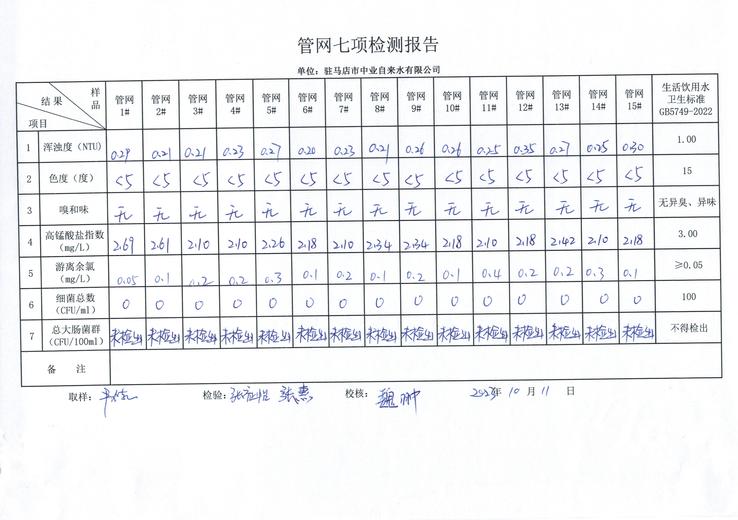 管网七项检测报告
单位：驻马店市中业自来水有限公司
结果 样品 项目 管网1# 管网2# 管网3# 管网4# 管网5# 管网6# 管网7# 管网8# 管网9# 管网10# 管网11# 管网12# 管网13# 管网14# 管网15# 生活饮用水卫生标准GB5749-2022
1 浑浊度（NTU） 0.29 0.21 0.21 0.23 0.27 0.20 0.23 0.21 0.26 0.26 0.25 0.35 0.27 0.25 0.30 1.00
2 色度（度） <5 <5 <5 <5 <5 <5 <5 <5 <5 <5 <5 <5 <5 <5 <5 15
3 嗅和味 无 无 无 无 无 无 无 无 无 无 无 无 无 无 无 无异臭、异味
4 高锰酸盐指数（mg/L） 2.69 2.61 2.10 2.10 2.26 2.18 2.10 2.34 2.34 2.18 2.10 2.18 2.42 2.10 2.18 3.00
5 游离余氯（mg/L） 0.05 0.1 0.2 0.2 0.3 0.1 0.2 0.1 0.2 0.1 0.4 0.2 0.2 0.3 0.1 ≥0.05
6 细菌总数（CFU/ml） 0 0 0 0 0 0 0 0 0 0 0 0 0 0 0 100
7 总大肠菌群（CFU/100ml） 未检出 未检出 未检出 未检出 未检出 未检出 未检出 未检出 未检出 未检出 未检出 未检出 未检出 未检出 未检出 不得检出
备注
取样： 检验： 校核： 年10月11日